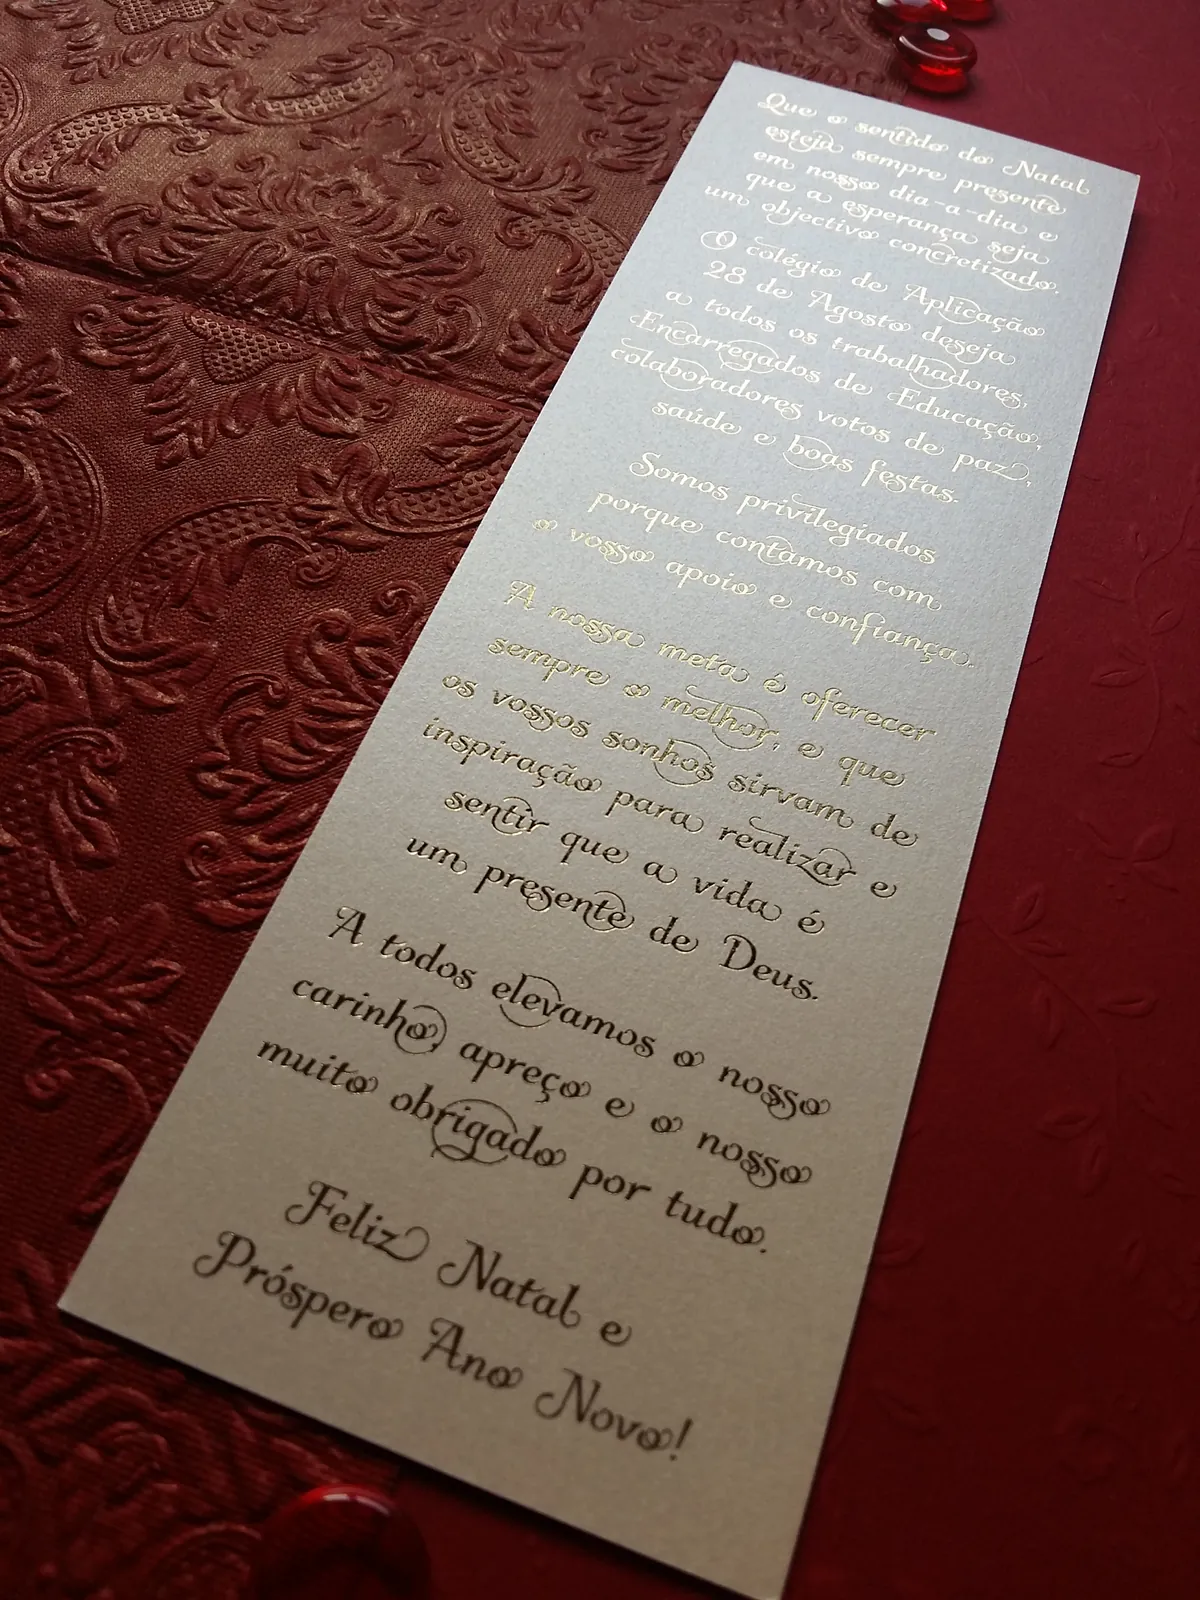 Que o sentido do Natal
esteja sempre presente
em nosso dia-a-dia e
que a esperança seja
um objectivo concretizado.
O colégio de Aplicação
28 de Agosto deseja
a todos os trabalhadores,
Encarregados de Educação,
colaboradores votos de paz,
saúde e boas festas.
Somos privilegiados
porque contamos com
o vosso apoio e confiança.
A nossa meta é oferecer
sempre o melhor, e que
os vossos sonhos sirvam de
inspiração para realizar e
sentir que a vida é
um presente de Deus.
A todos elevamos o nosso
carinho, apreço e o nosso
muito obrigado por tudo.
Feliz Natal e
Próspero Ano Novo!